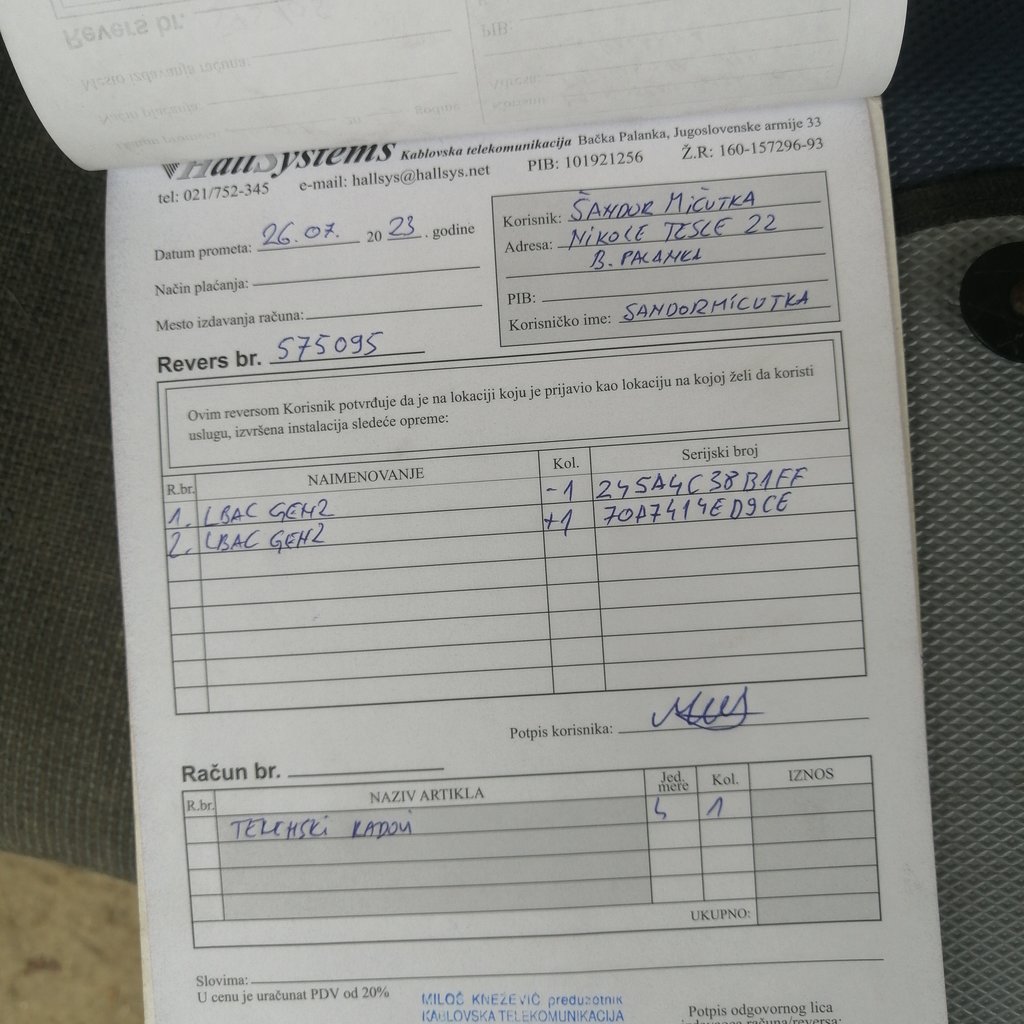 Revers br.
HallSystems Kablovska telekomunikacija Bačka Palanka, Jugoslovenske armije 33
tel: 021/752-345 e-mail: hallsys@hallsys.net PIB: 101921256 Ž.R: 160-157296-93
Datum prometa: 26.07. 2023. godine
Način plaćanja:
Mesto izdavanja računa:
Korisnik: ŠANDOR MIČUTKA
Adresa: NIKOLE TESLE 22
B. PALANKA
PIB:
Korisničko ime: SANDORMICUTKA
Revers br. 575095
Ovim reversom Korisnik potvrđuje da je na lokaciji koju je prijavio kao lokaciju na kojoj želi da koristi
uslugu, izvršena instalacija sledeće opreme:
R.br. NAIMENOVANJE Kol. Serijski broj
1. LBAC GEN2 -1 245A4C38B1FF
2. LBAC GEN2 +1 70A7414ED9CE
Potpis korisnika:
Račun br.
R.br. NAZIV ARTIKLA Jed. mere Kol. IZNOS
TEHNSKI RADOVI 1
UKUPNO:
Slovima:
U cenu je uračunat PDV od 20%
MILOŠ KNEŽEVIĆ preduzetnik
KABLOVSKA TELEKOMUNIKACIJA
Potpis odgovornog lica
računa/reversa: